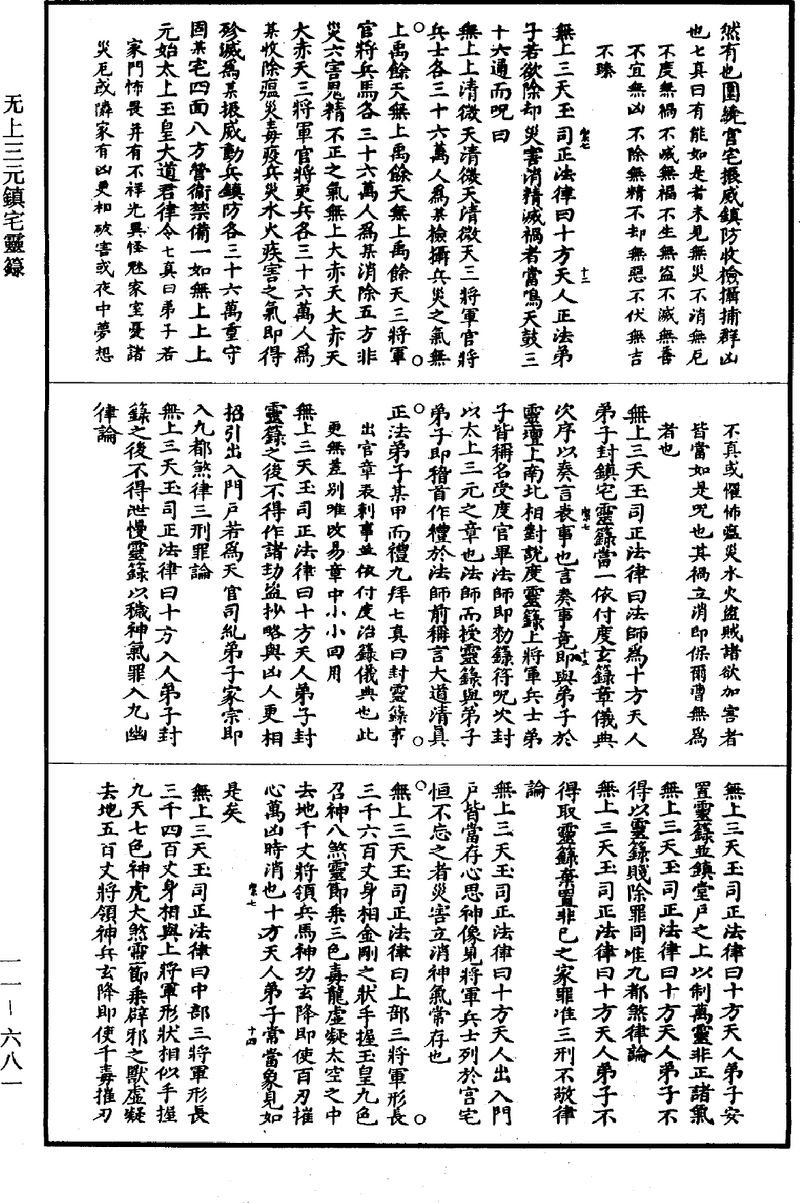 无上三元鎮宅靈籙
然有也圍繞宮宅振威鎮防收檢攝捕群凶
也七真曰有能如是者未見無災不消無厄
不度無禍不滅無福不生無盜不滅無善
不宜無凶不除無精不却無惡不伏無吉
不臻
無上三天玉司正法律曰十方天人正法弟
子若欲除却災害消精滅禍者當鳴天鼓三
十六通而呪曰
無上上清微天清微天清微天三將軍官將
兵士各三十六萬人為某檢攝兵災之氣無
上禹餘天無上禹餘天無上禹餘天三將軍
官將兵馬各三十六萬人為某消除五方非
災六害鬼精不正之氣無上大赤天大赤天
大赤天三將軍官將吏兵各三十六萬人為
某收除瘟災毒疫兵災水火疾害之氣即得
殄滅為某振威動兵鎮防各三十六萬重守
固某宅四面八方營衛禁備一如無上上上
元始太上玉皇大道君律令七真曰弟子若
家門怖畏并有不祥光異怪魅家室憂諸
災厄或隣家有凶更相破害或夜中夢想
不真或懼怖瘟災水火盜賊諸欲加害者
皆當如是呪也其禍立消即保爾曹無為
者也
無上三天玉司正法律曰法師為十方天人
弟子封鎮宅靈籙當一依付度玄籙章儀典
次序以奏言表事也言奏事竟即與弟子於
靈壇上南北相對說度靈籙上將軍兵士弟
子皆稱名受度官畢法師即勑籙符呪次封
以太上三元之章也法師而授靈籙與弟子
弟子即稽首作禮於法師前稱言大道清真
正法弟子某甲而禮九拜七真曰封靈籙事
出官章表刺事並依付度治籙儀典也此
更無差別唯改易章中小小回用
無上三天玉司正法律曰十方天人弟子封
靈籙之後不得作諸劫盜抄略與凶人更相
招引出入門戶若為天官司糺弟子家宗即
入九都煞律三刑罪論
無上三天玉司正法律曰十方入人弟子封
籙之後不得泄慢靈籙以穢神氣罪入九幽
律論
無上三天玉司正法律曰十方天人弟子安
置靈籙並鎮堂戶之上以制萬靈非正諸氣
無上三天玉司正法律曰十方天人弟子不
得以靈籙賤除罪同准九都煞律論
無上三天玉司正法律曰十方天人弟子不
得取靈籙棄置非己之家罪准三刑不敬律
論
無上三天玉司正法律曰十方天人出入門
戶皆當存心思神像見將軍兵士列於宮宅
恒不忘之者災害立消神氣常存也
無上三天玉司正法律曰上部三將軍形長
三千六百丈身相金剛之狀手握玉皇九色
召神八煞靈節乘三色毒龍虛凝太空之中
去地千丈將領兵馬神功玄降即使百刃摧
心萬凶時消也十方天人弟子常當象見如
是矣
無上三天玉司正法律曰中部三將軍形長
三千四百丈身相與上將軍形狀相似手握
九天七色神虎大煞靈節乘辟邪之獸虛凝
去地五百丈將領神兵玄降即使千毒摧刃
一一－六八一